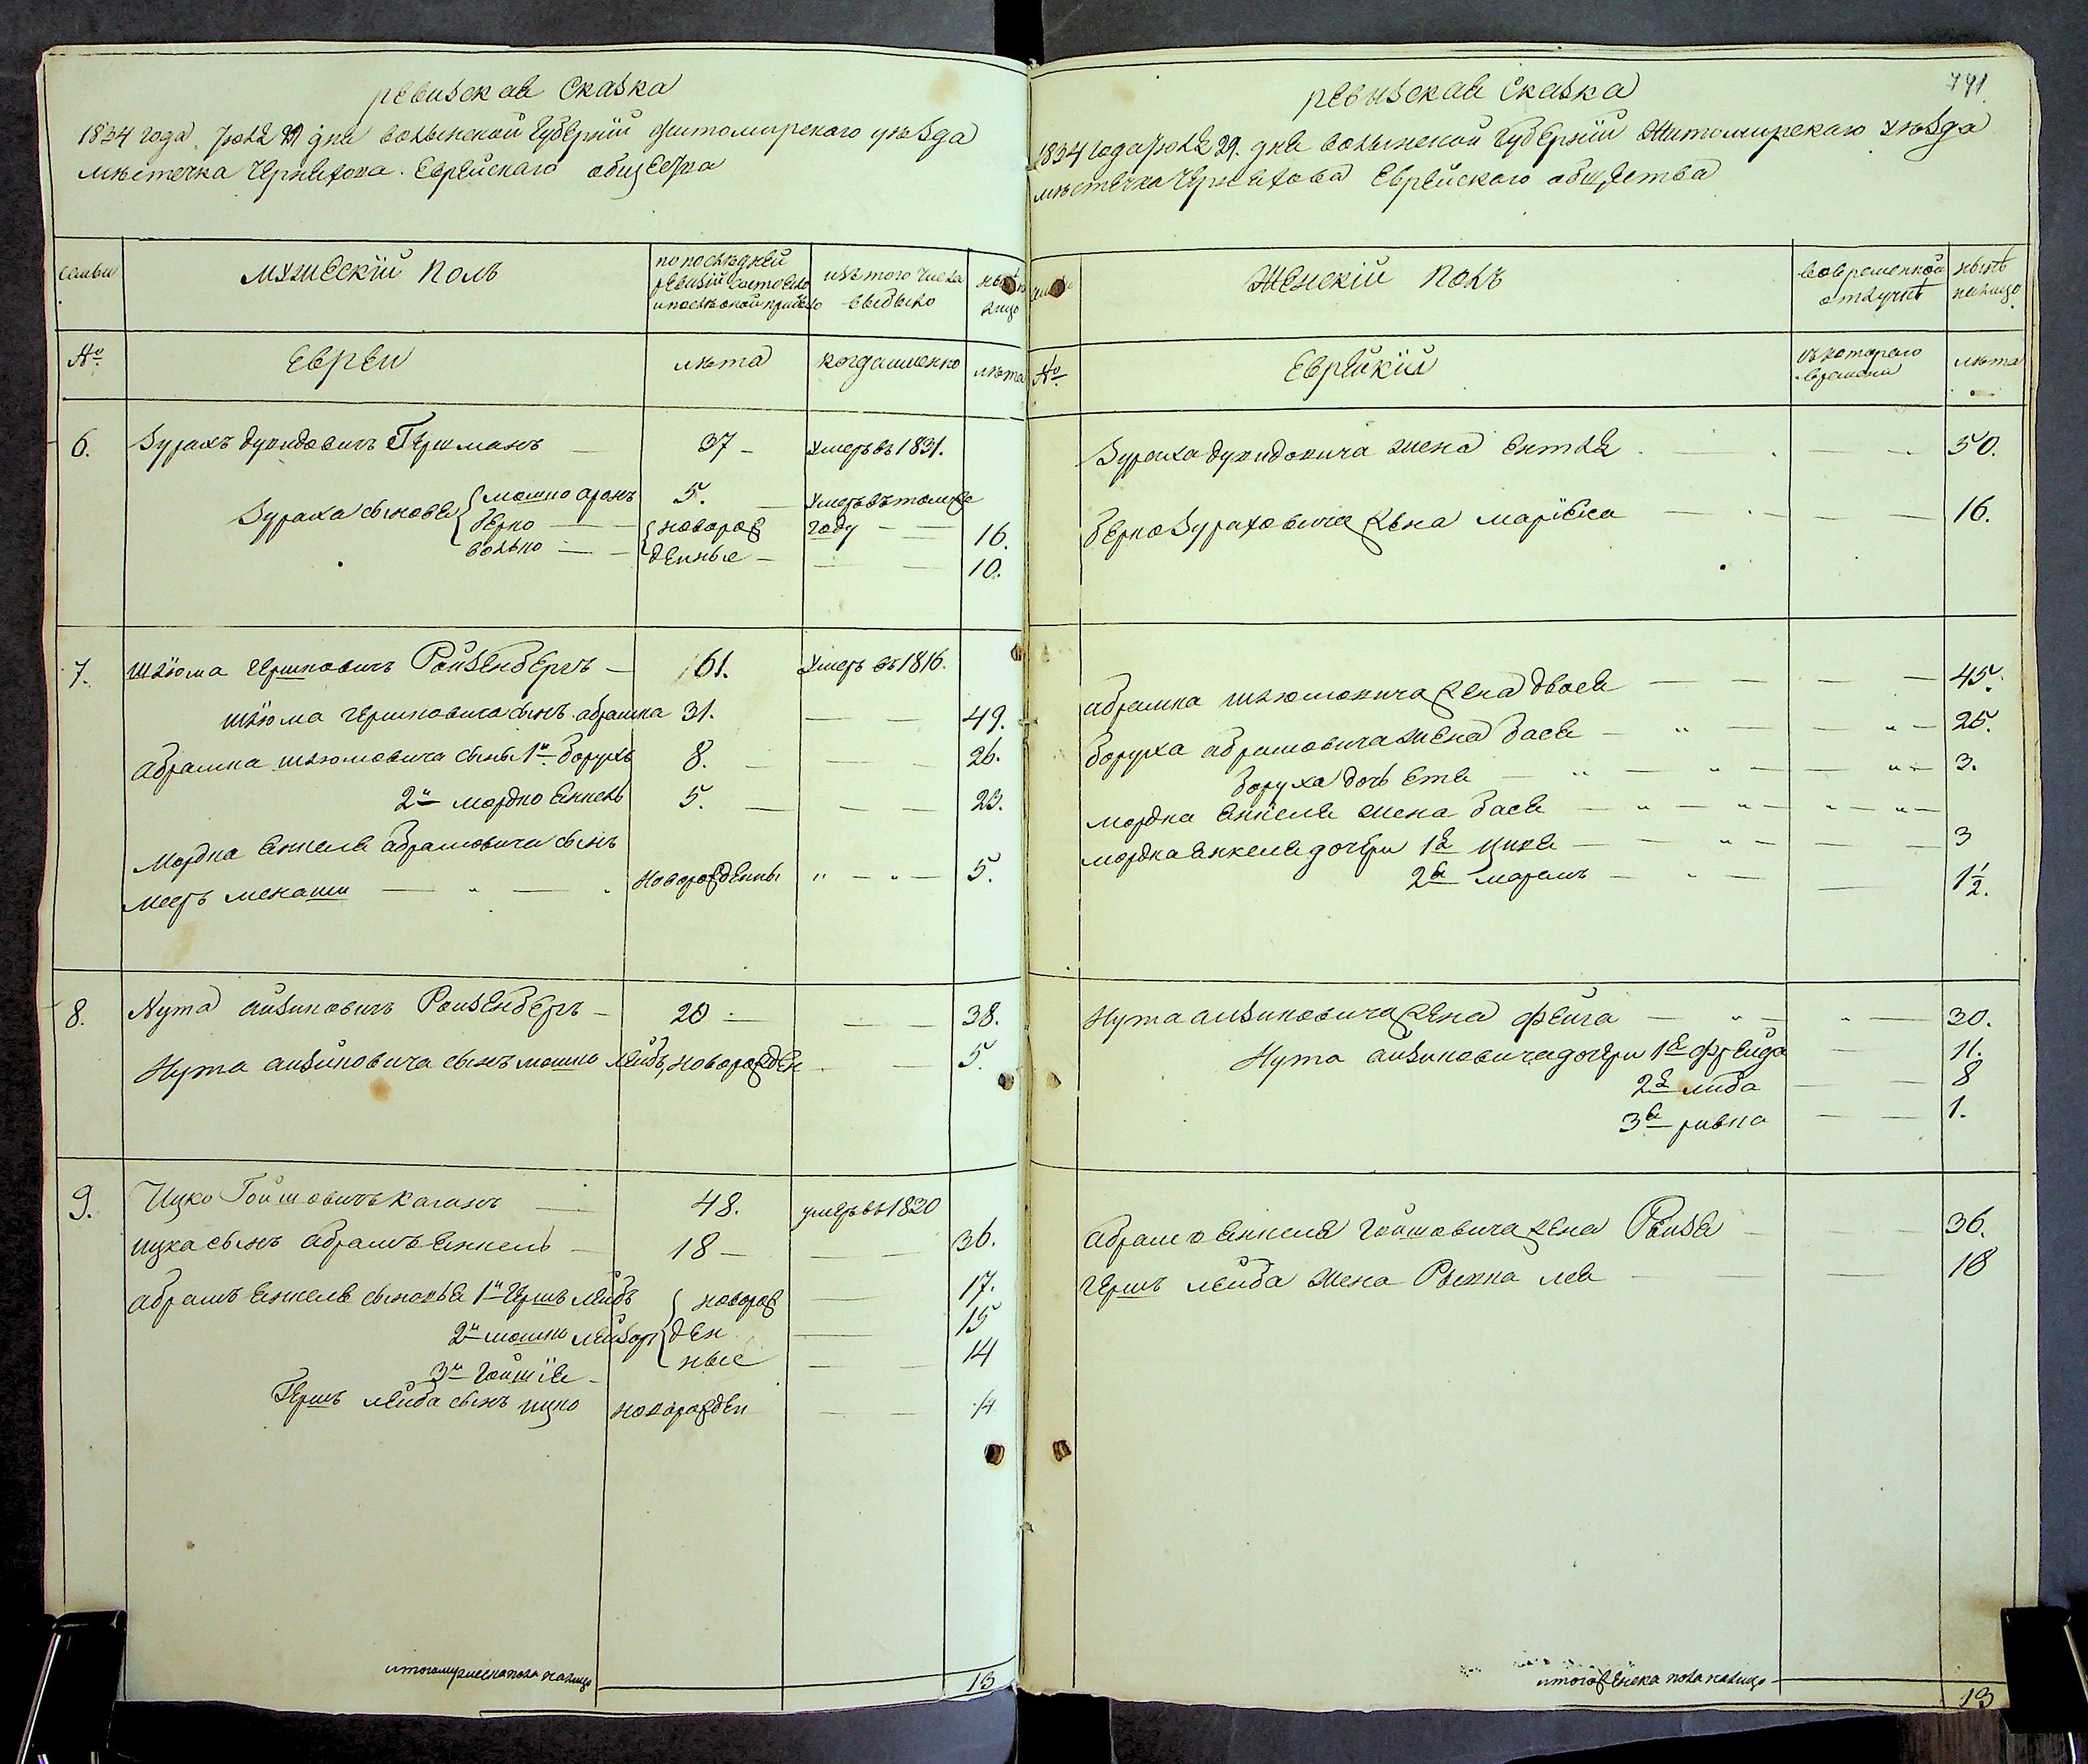 ревизская Сказка
1834 года, Юля 29 дня волынской Губернїи Житомирскаго уѣзда
мѣстечка Черняхова. Еврейскаго общества
семьи
мужескїй полъ
по последней ревизїи состояло и после оной прибыло
изъ того числа выбыло
№
Евреи
лѣта
когда именно
лѣта
6. Зурахъ дувидовичъ Гершманъ — 37 — умеръ въ 1831.
Зураха сыновя { мошко аронъ 5. — умеръ въ томже
берко — { новорож году — 16.
волько — денные — 10.
7. шлюома гершковичъ Ройзенбергъ — 61. умеръ въ 1816.
шлюома гершковича сынъ абрамка 31. — — 49.
абрамка шлюомовича сыны 1й борухъ 8. — — 26.
2й мордко янкель 5. — — 23.
Мордка янкеля абрамовича сынъ
мееръ менаши — новорожденны — 5.
8. Нута айзиковичъ Ройзенберъ — 20 — — 38.
Нута айзиковича сынъ мошко лейбъ, новорожден — 5.
9. Ицко Гойшовичъ каганъ — 48. умеръ въ 1820
ицка сынъ абрамъ янкель — 18 — — 36.
абрамъ янкеля сыновья 1й гершъ лейбъ { новорож — 17.
2й мошко лейзоръ { ден — 15
3й гойшїя — ные — 14
Гершъ лейба сынъ ицко новорожден — 1/4
итого мужеска пола налицо 13
791
ревизская Сказка
1834 года Юля 29. дня волынской Губернїи Житомирскаго уѣзда
мѣстечка Черняхова Еврейскаго общества
Женскїй полъ
во временной отлучкѣ
нынѣ налицо
№
Еврейкїи
съ котораго времени
лѣта
Зураха дувидовича жена ентля — 50.
берко Зураховича жена марїеса — 16.
абрамка шлюомовича жена двося — 45.
боруха абрамовича жена бася — 25.
боруха дочъ етя — 3.
мордка янкеля жена бася —
мордка янкеля дочери 1я цивя — 3
2я марямъ — 1½.
Нута айзиковича жена фейга — 30.
Нута айзиковича дочери 1я фрейда — 11.
2я либа — 8
3я ривка — 1.
абрамъ янкеля гойшовича жена Рейзя — 36.
гершъ лейба жена Рывка лея — 18
итого женска пола налицо 13